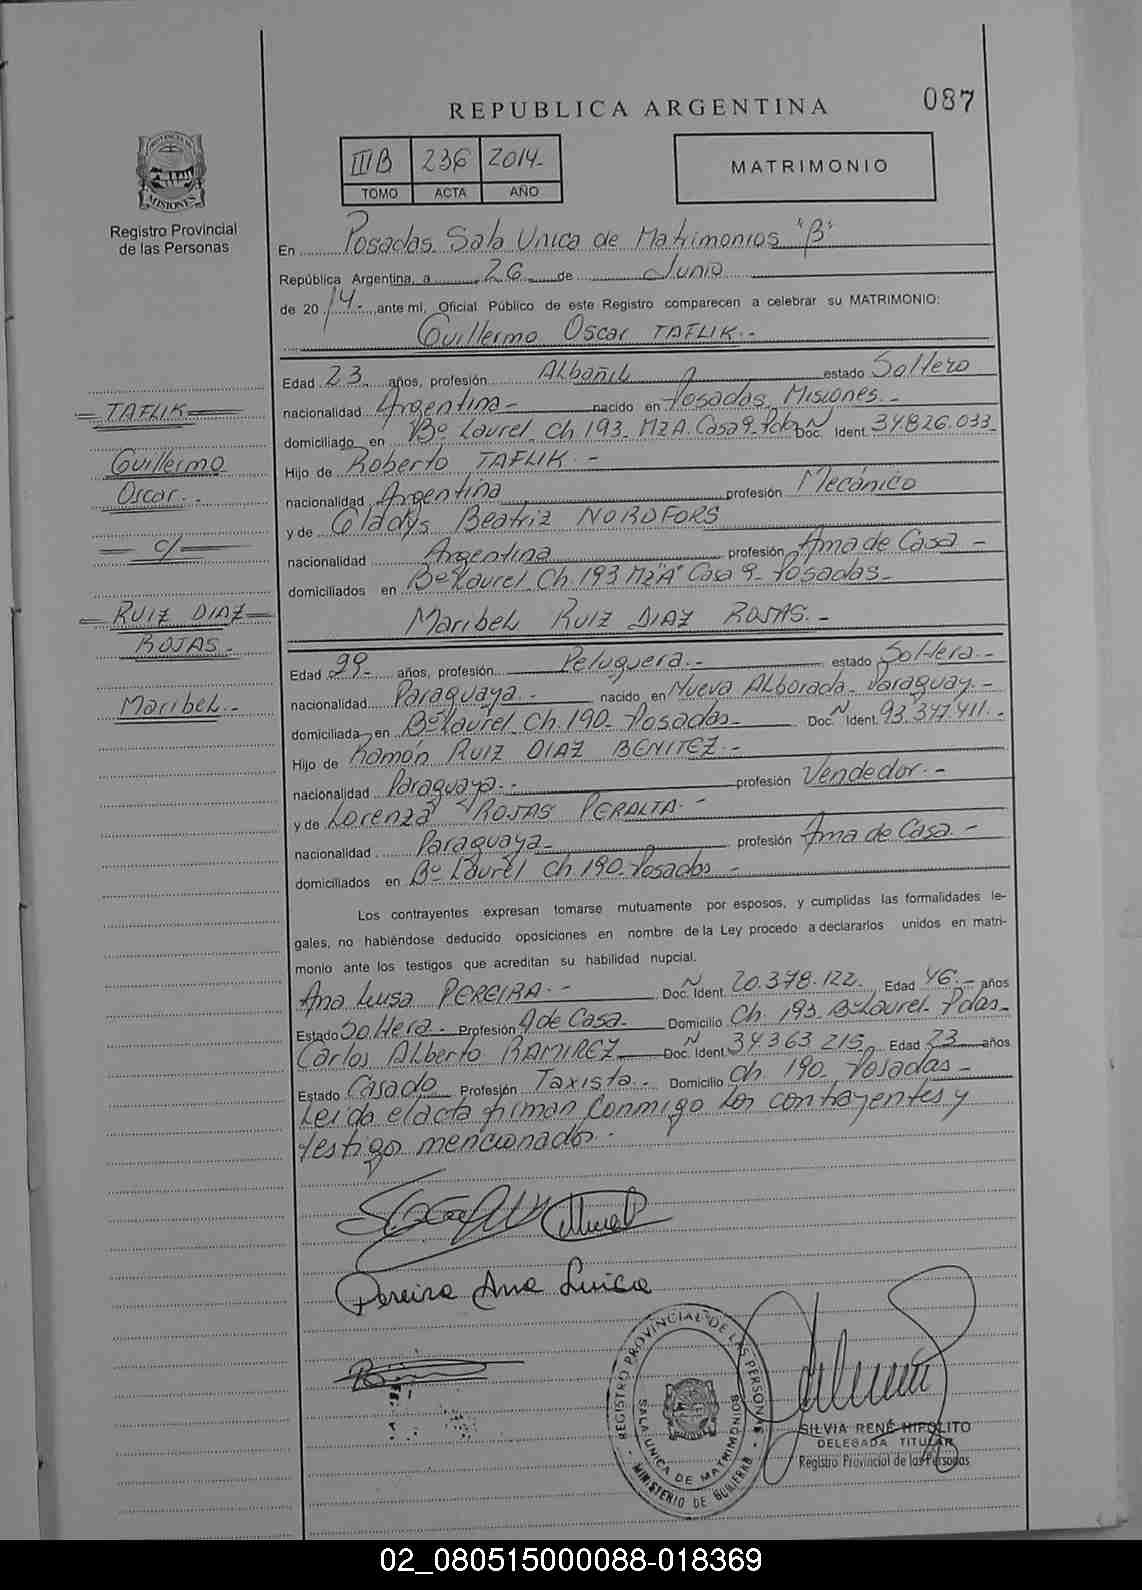 REPUBLICA ARGENTINA
087
IIIB 236 2014-
TOMO ACTA AÑO
MATRIMONIO
PROVINCIA DE
MISIONES
Registro Provincial
de las Personas
En Posadas Sala Unica de Matrimonios "B"
República Argentina, a 26 de Junio
de 2014.- ,ante mi, Oficial Público de este Registro comparecen a celebrar su MATRIMONIO:
Guillermo Oscar TAFLIK.-
Edad 23 años, profesión Albañil estado Soltero
nacionalidad Argentina- nacido en Posadas, Misiones.-
domiciliado en Bº Laurel Ch 193- MzA. Casa 9- Pdas Doc. Nº Ident. 34.826.033-
Hijo de Roberto TAFLIK.-
nacionalidad Argentina profesión Mecánico
y de Gladys Beatriz NORDFORS
nacionalidad Argentina profesión Ama de Casa -
domiciliados en Bº Laurel Ch 193 Mz"A" Casa 9- Posadas-
Maribel RUIZ DIAZ ROJAS.-
Edad 29- años, profesión Peluquera.- estado Soltera.-
nacionalidad Paraguaya.- nacido en Nueva Alborada- Paraguay.-
domiciliada en Bº Laurel Ch.190- Posadas- Doc. Nº Ident. 93.347.411.-
Hijo de Ramón RUIZ DIAZ BENITEZ.-
nacionalidad Paraguaya.- profesión Vendedor.-
y de Lorenza ROJAS PERALTA.-
nacionalidad Paraguaya- profesión Ama de Casa.-
domiciliados en Bº Laurel Ch.190- Posadas -
Los contrayentes expresan tomarse mutuamente por esposos, y cumplidas las formalidades le-
gales, no habiéndose deducido oposiciones en nombre de la Ley procedo a declararlos unidos en matri-
monio ante los testigos que acreditan su habilidad nupcial.
Ana Luisa PEREIRA.- Doc. Nº Ident. 20.378.122. Edad 46.- años
Estado Soltera- Profesión A de Casa- Domicilio Ch 193 Bº Laurel- Pdas-
Carlos Alberto RAMIREZ Doc. Nº Ident. 34.363.215 Edad 23 años
Estado Casado Profesión Taxista- Domicilio Ch. 190- Posadas-
Leida el acta firman conmigo los contrayentes y
testigos mencionados.
Pereira Ana Luisa
TAFLIK
Guillermo
Oscar.-
c/
RUIZ DIAZ
ROJAS-
Maribel.-
REGISTRO PROVINCIAL DE LAS PERSONAS
SALA UNICA DE MATRIMONIOS
MINISTERIO DE GOBIERNO
SILVIA RENÉ HIPOLITO
DELEGADA TITULAR
Registro Provincial de las Personas
02_080515000088-018369